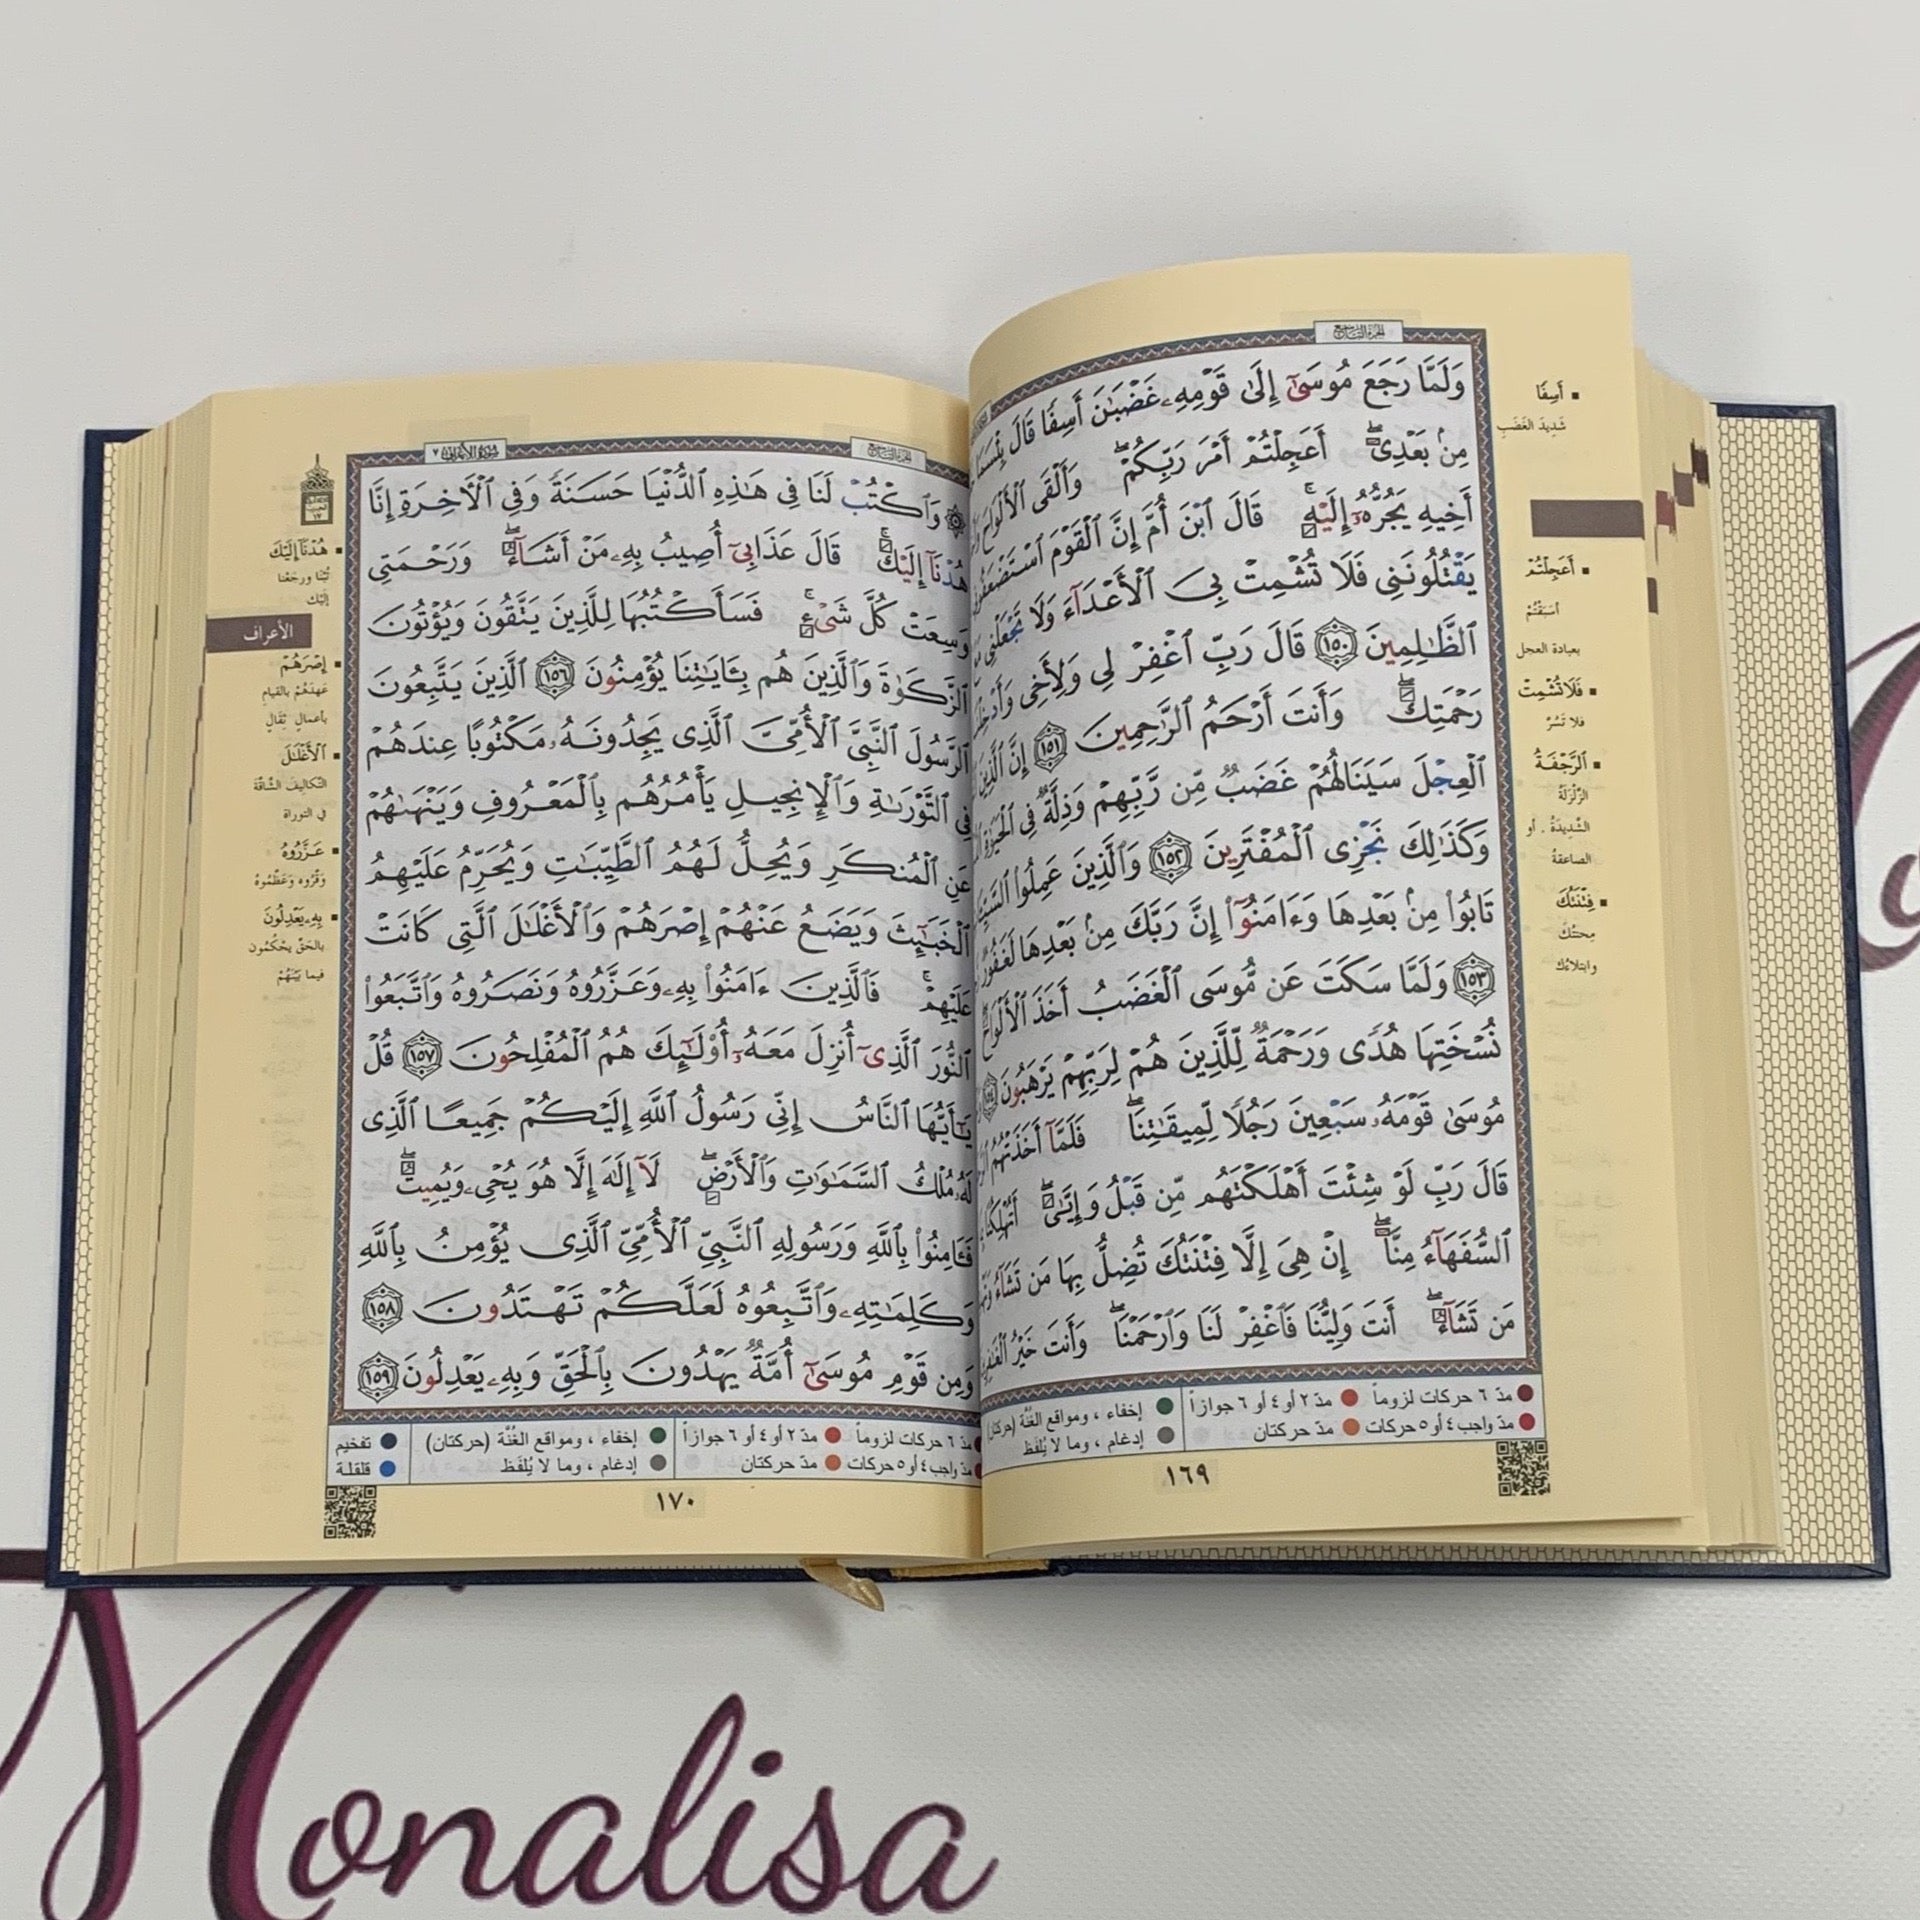 الجزء التاسع
وَلَمَّا رَجَعَ مُوسَىٰٓ إِلَىٰ قَوْمِهِۦ غَضْبَٰنَ أَسِفًا قَالَ بِئْسَمَا
مِنۢ بَعْدِىٓ أَعَجِلْتُمْ أَمْرَ رَبِّكُمْ وَأَلْقَى ٱلْأَلْوَاحَ
أَخِيهِ يَجُرُّهُۥٓ إِلَيْهِ قَالَ ٱبْنَ أُمَّ إِنَّ ٱلْقَوْمَ ٱسْتَضْعَفُونِى
يَقْتُلُونَنِى فَلَا تُشْمِتْ بِىَ ٱلْأَعْدَآءَ وَلَا تَجْعَلْنِى
ٱلظَّٰلِمِينَ ١٥٠ قَالَ رَبِّ ٱغْفِرْ لِى وَلِأَخِى وَأَدْخِلْنَا
رَحْمَتِكَ وَأَنتَ أَرْحَمُ ٱلرَّٰحِمِينَ ١٥١ إِنَّ ٱلَّذِينَ
ٱلْعِجْلَ سَيَنَالُهُمْ غَضَبٌ مِّن رَّبِّهِمْ وَذِلَّةٌ فِى ٱلْحَيَوٰةِ
وَكَذَٰلِكَ نَجْزِى ٱلْمُفْتَرِينَ ١٥٢ وَٱلَّذِينَ عَمِلُوا۟ ٱلسَّيِّـَٔاتِ
تَابُوا۟ مِنۢ بَعْدِهَا وَءَامَنُوٓا۟ إِنَّ رَبَّكَ مِنۢ بَعْدِهَا لَغَفُورٌ
١٥٣ وَلَمَّا سَكَتَ عَن مُّوسَى ٱلْغَضَبُ أَخَذَ ٱلْأَلْوَاحَ
نُسْخَتِهَا هُدًى وَرَحْمَةٌ لِّلَّذِينَ هُمْ لِرَبِّهِمْ يَرْهَبُونَ ١٥٤
مُوسَىٰ قَوْمَهُۥ سَبْعِينَ رَجُلًا لِّمِيقَٰتِنَا فَلَمَّآ أَخَذَتْهُمُ
قَالَ رَبِّ لَوْ شِئْتَ أَهْلَكْتَهُم مِّن قَبْلُ وَإِيَّٰىَ أَتُهْلِكُنَا
ٱلسُّفَهَآءُ مِنَّآ إِنْ هِىَ إِلَّا فِتْنَتُكَ تُضِلُّ بِهَا مَن تَشَآءُ
مَن تَشَآءُ أَنتَ وَلِيُّنَا فَٱغْفِرْ لَنَا وَٱرْحَمْنَا وَأَنتَ خَيْرُ ٱلْغَٰفِرِينَ
أَسِفًا
شَدِيدَ الغَضَبِ
أَعَجِلْتُمْ
أسَبَقْتُمْ
بعبادة العجل
فَلَا تُشْمِتْ
فلا تَسُرَّ
ٱلرَّجْفَةُ
الزَّلْزَلَةُ
الشَّدِيدَةُ ، أو
الصاعقةُ
فِتْنَتُكَ
مِحنَتُكَ
وابتلاءك
مدّ ٦ حركات لزوماً مدّ ٢ أو ٤ أو ٦ جوازاً إخفاء ، ومواقع الغُنَّة (حركتان)
مدّ واجب ٤ أو ٥ حركات مدّ حركتان إدغام ، وما لا يُلفَظ
١٦٩
الجزء التاسع سورة الأعراف ٧
وَٱكْتُبْ لَنَا فِى هَٰذِهِ ٱلدُّنْيَا حَسَنَةً وَفِى ٱلْأَخِرَةِ إِنَّا
هُدْنَآ إِلَيْكَ قَالَ عَذَابِىٓ أُصِيبُ بِهِۦ مَنْ أَشَآءُ وَرَحْمَتِى
وَسِعَتْ كُلَّ شَىْءٍ فَسَأَكْتُبُهَا لِلَّذِينَ يَتَّقُونَ وَيُؤْتُونَ
ٱلزَّكَوٰةَ وَٱلَّذِينَ هُم بِـَٔايَٰتِنَا يُؤْمِنُونَ ١٥٦ ٱلَّذِينَ يَتَّبِعُونَ
ٱلرَّسُولَ ٱلنَّبِىَّ ٱلْأُمِّىَّ ٱلَّذِى يَجِدُونَهُۥ مَكْتُوبًا عِندَهُمْ
فِى ٱلتَّوْرَىٰةِ وَٱلْإِنجِيلِ يَأْمُرُهُم بِٱلْمَعْرُوفِ وَيَنْهَىٰهُمْ
عَنِ ٱلْمُنكَرِ وَيُحِلُّ لَهُمُ ٱلطَّيِّبَٰتِ وَيُحَرِّمُ عَلَيْهِمُ
ٱلْخَبَٰٓئِثَ وَيَضَعُ عَنْهُمْ إِصْرَهُمْ وَٱلْأَغْلَٰلَ ٱلَّتِى كَانَتْ
عَلَيْهِمْ فَٱلَّذِينَ ءَامَنُوا۟ بِهِۦ وَعَزَّرُوهُ وَنَصَرُوهُ وَٱتَّبَعُوا۟
ٱلنُّورَ ٱلَّذِىٓ أُنزِلَ مَعَهُۥٓ أُو۟لَٰٓئِكَ هُمُ ٱلْمُفْلِحُونَ ١٥٧ قُلْ
يَٰٓأَيُّهَا ٱلنَّاسُ إِنِّى رَسُولُ ٱللَّهِ إِلَيْكُمْ جَمِيعًا ٱلَّذِى
لَهُۥ مُلْكُ ٱلسَّمَٰوَٰتِ وَٱلْأَرْضِ لَآ إِلَٰهَ إِلَّا هُوَ يُحْىِۦ وَيُمِيتُ
فَـَٔامِنُوا۟ بِٱللَّهِ وَرَسُولِهِ ٱلنَّبِىِّ ٱلْأُمِّىِّ ٱلَّذِى يُؤْمِنُ بِٱللَّهِ
وَكَلِمَٰتِهِۦ وَٱتَّبِعُوهُ لَعَلَّكُمْ تَهْتَدُونَ ١٥٨
وَمِن قَوْمِ مُوسَىٰٓ أُمَّةٌ يَهْدُونَ بِٱلْحَقِّ وَبِهِۦ يَعْدِلُونَ ١٥٩
هُدْنَآ إِلَيْكَ
تُبْنَا ورجَعْنا
إليْك
الأعراف
إِصْرَهُمْ
عَهدَهُمْ بالقيامِ
بأعمالٍ ثِقَالٍ
ٱلْأَغْلَٰلَ
التَّكاليفَ الشَّاقَّةَ
في التوراة
عَزَّرُوهُ
وَقَّرُوه وَعَظَّمُوهُ
بِهِۦ يَعْدِلُونَ
بالحَقِّ يحْكُمون
فيما بَيْنَهُمْ
مدّ ٦ حركات لزوماً مدّ ٢ أو ٤ أو ٦ جوازاً إخفاء ، ومواقع الغُنَّة (حركتان) تفخيم
مدّ واجب ٤ أو ٥ حركات مدّ حركتان إدغام ، وما لا يُلفَظ قلقلة
١٧٠
Monalisa